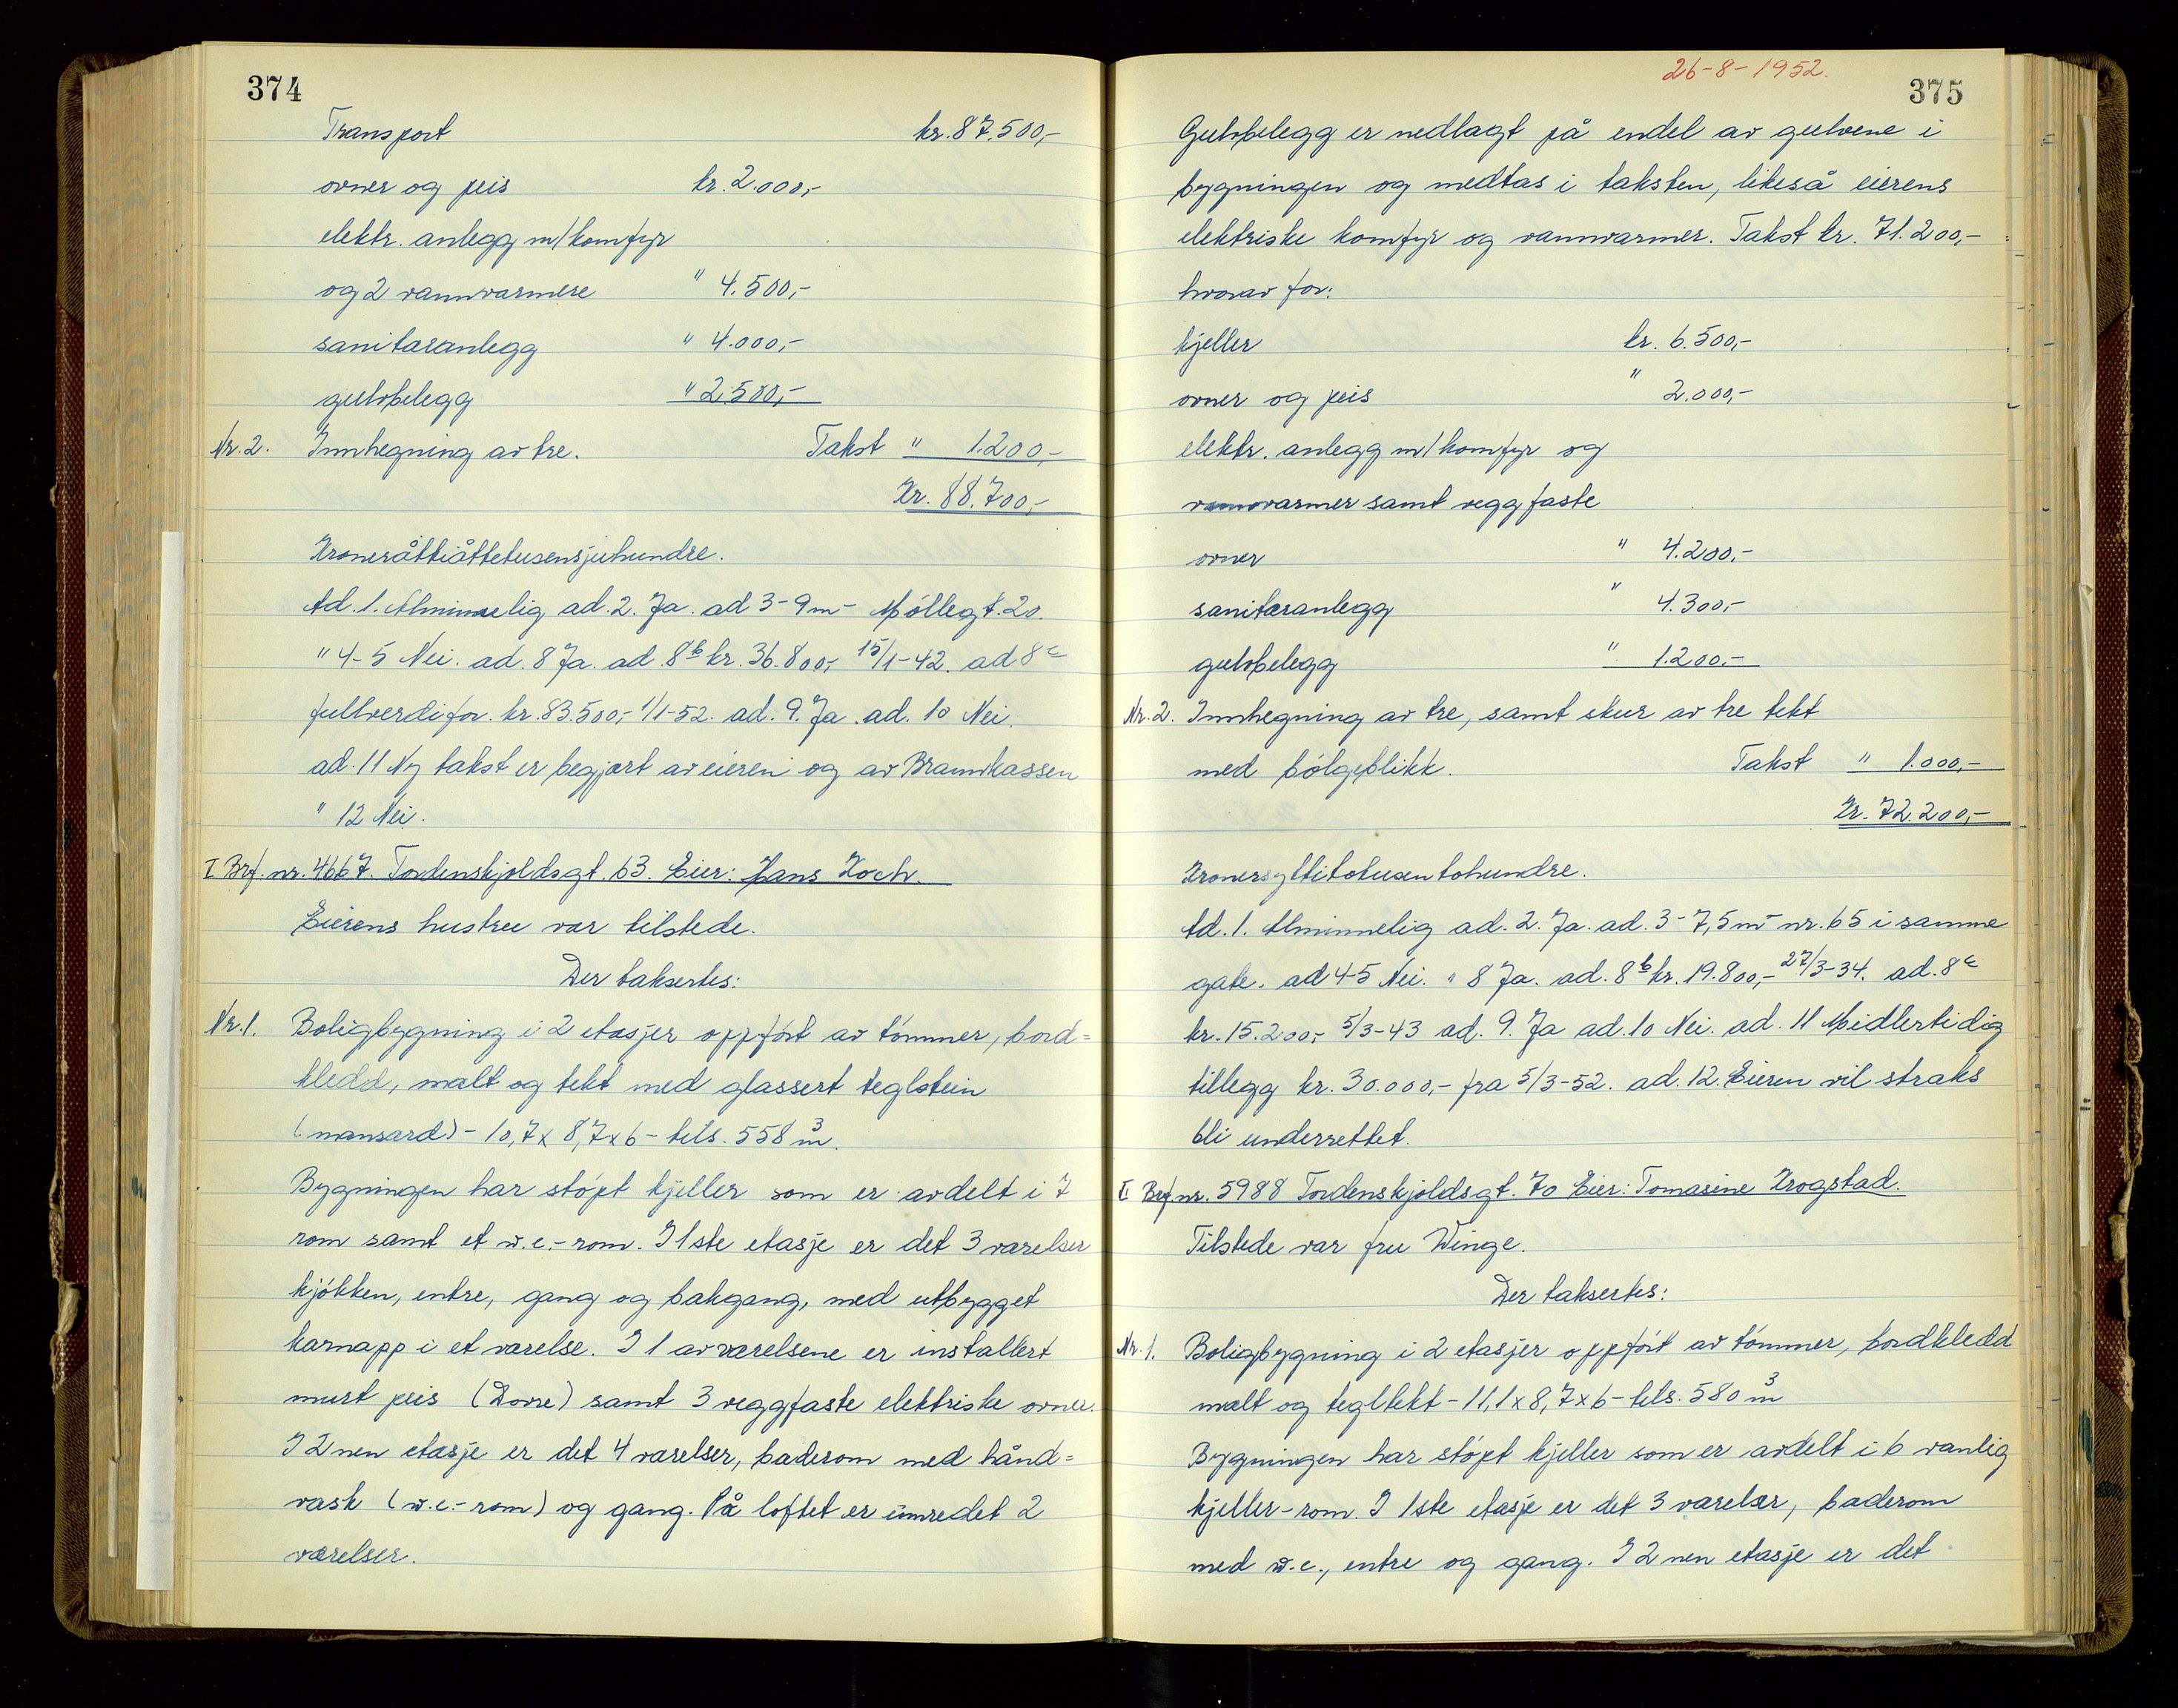 374
Transport kr. 87.500,-
ovner og peis kr. 2.000,-
elektr. anlegg m/komfyr
og 2 vannvarmere " 4.500,-
sanitæranlegg " 4.000,-
gulvbelegg " 2.500,-
Nr. 2. Innhegning av tre. Takst " 1.200,-
Kr. 88.700,-
Kroneråttiåttetusensjuhundre.
Ad. 1. Alminnelig ad. 2. Ja. ad 3 - 9 m - Møllegt. 20.
" 4-5 Nei. ad. 8 Ja. ad. 8b kr. 36.800,- 15/1-42. ad 8c
fullverdifor. kr. 83.500,- 1/1-52. ad. 9. Ja. ad. 10 Nei.
ad. 11 Ny takst er begjært av eieren og av Brannkassen
" 12 Nei.
I Brf. nr. 4667. Tordenskjoldsgt. 63. Eier: Hans Koch.
Eierens hustru var tilstede.
Der taksertes:
Nr. 1. Boligbygning i 2 etasjer oppført av tømmer, bord=
kledd, malt og tekt med glassert teglstein
(mansard) - 10,7 x 8,7 x 6 - tils. 558 m3.
Bygningen har støpt kjeller som er avdelt i 7
rom samt et w.c.-rom. I 1ste etasje er det 3 værelser
kjøkken, entre, gang og bakgang, med utbygget
karnapp i et værelse. I 1 av værelsene er installert
murt peis (Dovre) samt 3 veggfaste elektriske ovner.
I 2nen etasje er det 4 værelser, baderom med hånd=
vask (w.c.-rom) og gang. På loftet er innredet 2
værelser.
26-8-1952.
375
Gulvbelegg er nedlagt på endel av gulvene i
bygningen og medtas i taksten, likeså eierens
elektriske komfyr og vannvarmer. Takst kr. 71.200,-
hvorav for:
kjeller kr. 6.500,-
ovner og peis " 2.000,-
elektr. anlegg m/komfyr og
vannvarmer samt veggfaste
ovner " 4.200,-
sanitæranlegg " 4.300,-
gulvbelegg " 1.200,-
Nr. 2. Innhegning av tre, samt skur av tre tekt
med bølgeblikk. Takst " 1.000,-
Kr. 72.200,-
Kronersyttitotusentohundre.
Ad. 1. Alminnelig ad. 2. Ja. ad. 3 - 7,5 m - nr. 65 i samme
gate. ad 4-5 Nei. " 8 Ja. ad. 8b kr. 19.800,- 27/3-34. ad. 8c
kr. 15.200,- 5/3-43 ad. 9. Ja ad. 10 Nei. ad. 11 Midlertidig
tillegg kr. 30.000,- fra 5/3-52. ad. 12. Eieren vil straks
bli underrettet.
I Brf nr. 5988 Tordenskjoldsgt. 70 Eier: Tomasine Krogstad.
Tilstede var fru Winge.
Der taksertes:
Nr. 1. Boligbygning i 2 etasjer oppført av tømmer, bordkledd
malt og tegltekt - 11,1 x 8,7 x 6 - tils. 580 m3
Bygningen har støpt kjeller som er avdelt i 6 vanlig
kjeller-rom. I 1ste etasje er det 3 værelser, baderom
med w.c., entre og gang. I 2nen etasje er det